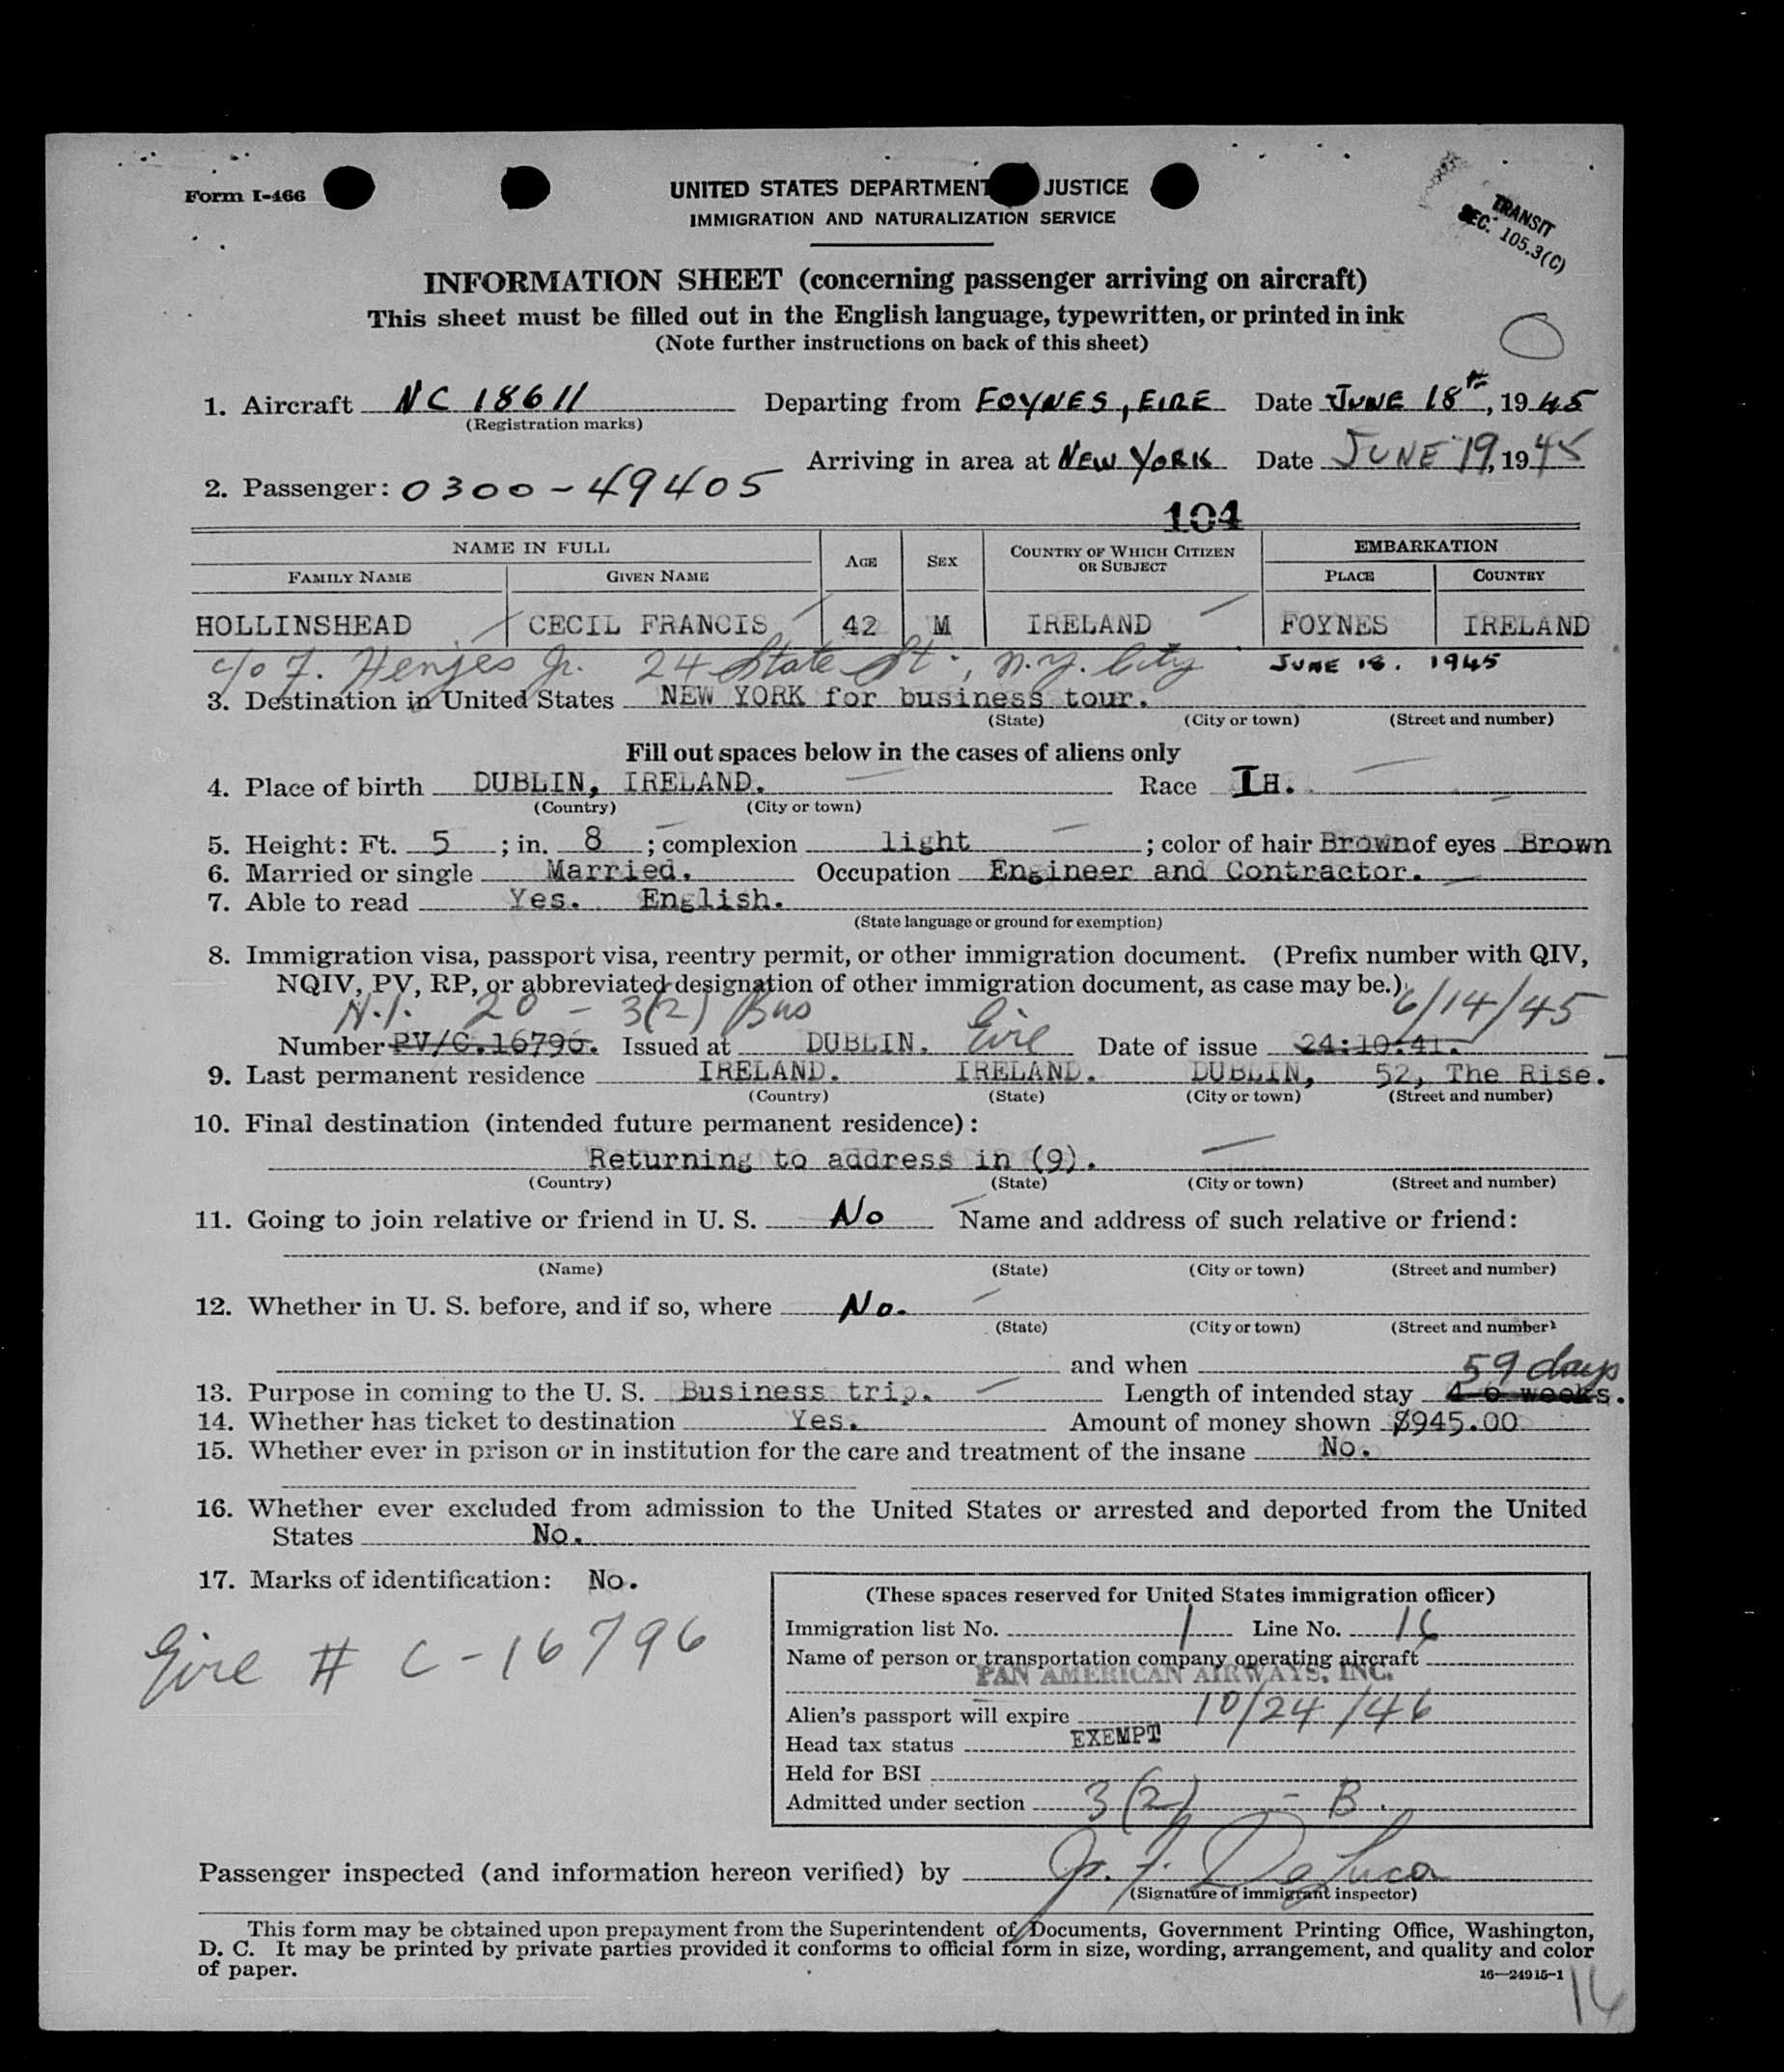 Form I-466
UNITED STATES DEPARTMENT JUSTICE
IMMIGRATION AND NATURALIZATION SERVICE
TRANSIT
SEC. 105.3(C)
INFORMATION SHEET (concerning passenger arriving on aircraft)
This sheet must be filled out in the English language, typewritten, or printed in ink
(Note further instructions on back of this sheet)
1. Aircraft NC 18611 Departing from FOYNES, EIRE Date JUNE 18th, 1945
(Registration marks)
Arriving in area at NEW YORK Date JUNE 19, 1945
2. Passenger: 0300-49405
104
NAME IN FULL AGE SEX COUNTRY OF WHICH CITIZEN OR SUBJECT EMBARKATION
FAMILY NAME GIVEN NAME PLACE COUNTRY
HOLLINSHEAD CECIL FRANCIS 42 M IRELAND FOYNES IRELAND
c/o F. Henjes Jr. 24 State St., N.Y. City JUNE 18. 1945
3. Destination in United States NEW YORK for business tour.
(State) (City or town) (Street and number)
Fill out spaces below in the cases of aliens only
4. Place of birth DUBLIN, IRELAND. Race IH.
(Country) (City or town)
5. Height: Ft. 5 ; in. 8 ; complexion light ; color of hair Brown of eyes Brown
6. Married or single Married. Occupation Engineer and Contractor.
7. Able to read Yes. English.
(State language or ground for exemption)
8. Immigration visa, passport visa, reentry permit, or other immigration document. (Prefix number with QIV,
NQIV, PV, RP, or abbreviated designation of other immigration document, as case may be.)
N.I. 20 - 3(2) Bus 6/14/45
Number PV/C.16796. Issued at DUBLIN. Eire Date of issue 24:10:41.
9. Last permanent residence IRELAND. IRELAND. DUBLIN, 52, The Rise.
(Country) (State) (City or town) (Street and number)
10. Final destination (intended future permanent residence):
Returning to address in (9).
(Country) (State) (City or town) (Street and number)
11. Going to join relative or friend in U. S. No Name and address of such relative or friend:
(Name) (State) (City or town) (Street and number)
12. Whether in U. S. before, and if so, where No.
(State) (City or town) (Street and number)
and when
59 days
13. Purpose in coming to the U. S. Business trip. Length of intended stay 4 6 weeks.
14. Whether has ticket to destination Yes. Amount of money shown $945.00
15. Whether ever in prison or in institution for the care and treatment of the insane No.
16. Whether ever excluded from admission to the United States or arrested and deported from the United
States No.
17. Marks of identification: No.
Eire # C-16796
(These spaces reserved for United States immigration officer)
Immigration list No. 1 Line No. 16
Name of person or transportation company operating aircraft
PAN AMERICAN AIRWAYS, INC.
Alien's passport will expire 10/24/46
Head tax status EXEMPT
Held for BSI
Admitted under section 3(2) - B.
Passenger inspected (and information hereon verified) by J. F. DeLuca
(Signature of immigrant inspector)
This form may be obtained upon prepayment from the Superintendent of Documents, Government Printing Office, Washington,
D. C. It may be printed by private parties provided it conforms to official form in size, wording, arrangement, and quality and color
of paper.
16—24915-1
16